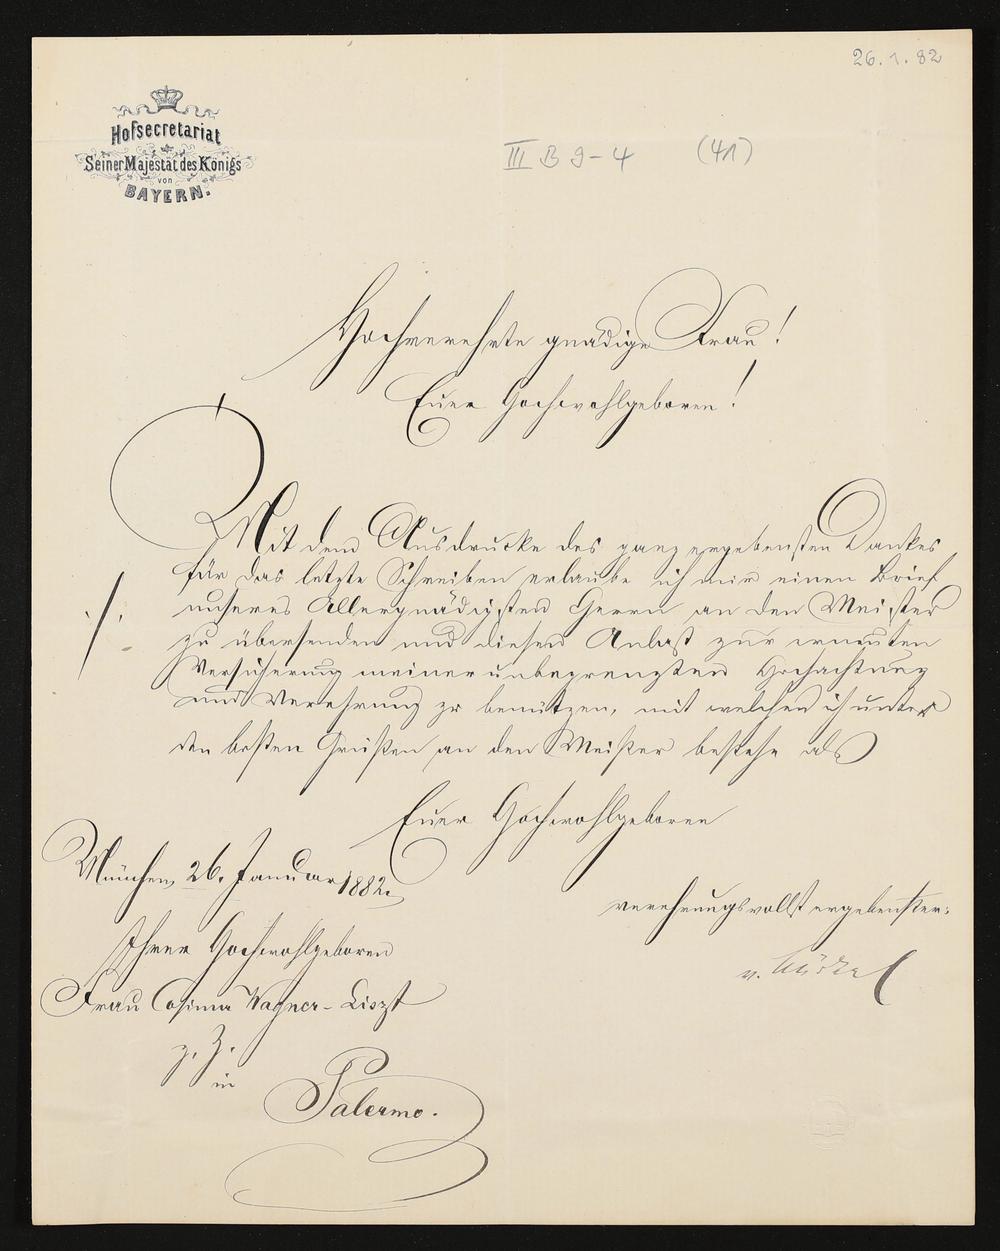 26. 1. 82
Hofsecretariat
Seiner Majestät des Königs
von
BAYERN.
III B 9-4 (41)
Hochverehrte gnädige Frau!
Euer Hochwohlgeboren!
Mit dem Ausdrucke des ganz ergebensten Dankes
für das letzte Schreiben erlaube ich mir einen Brief
unseres Allergnädigsten Herrn an den Meister
./.
zu übersenden und diesen Anlaß zur erneuten
Versicherung meiner unbegrenzten Hochachtung
und Verehrung zu benützen, mit welchen ich unter
den besten Grüßen an den Meister bestehe als
Euer Hochwohlgeboren
München, 26. Januar 1882.
verehrungsvollst ergebenster:
v. Bürkel
Ihrer Hochwohlgeboren
Frau Cosima Wagner-Liszt
z. Z.
in
Palermo.